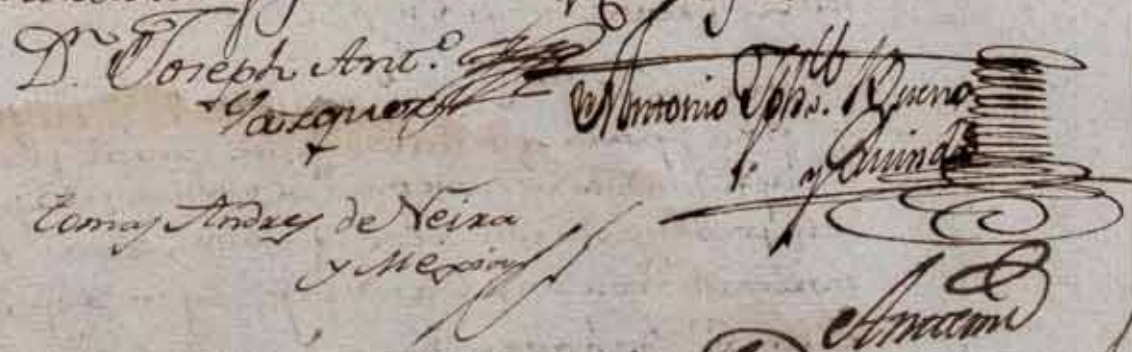 Dn. Joseph Ant.º
Vazquez
Antonio Jph. Bueno
y Quind.ª
Tomas Andres de Neira
y Mexia
Ante mi